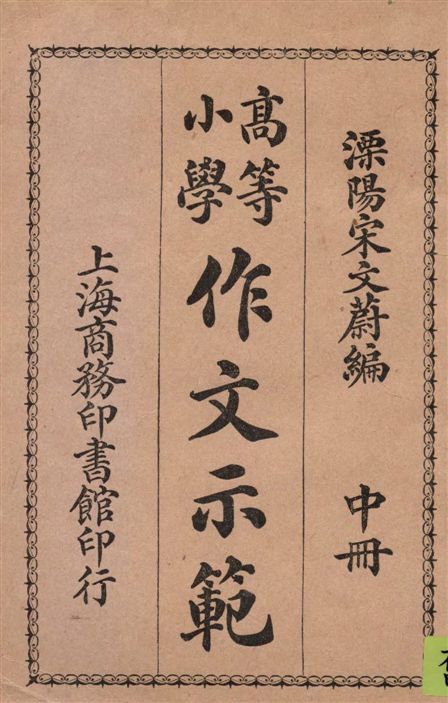 溧陽宋文蔚編 中冊
高等
小學
作文示範
上海商務印書館印行